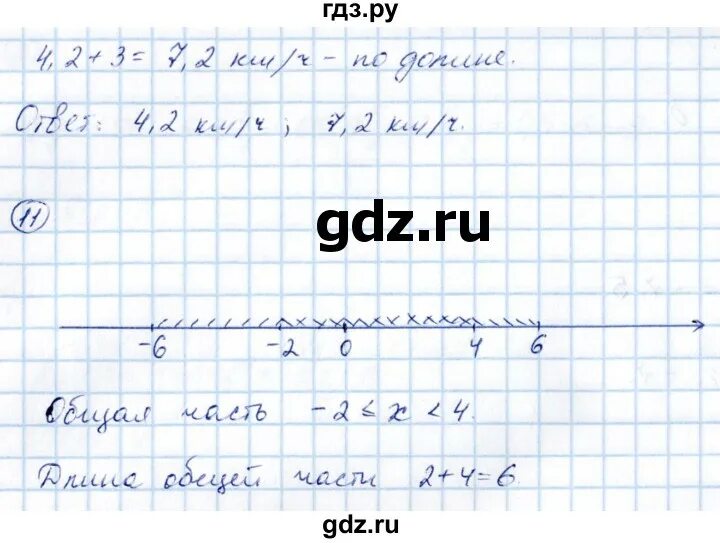 гдз.ру
4,2 + 3 = 7,2 км/ч – по долине.
Ответ: 4,2 км/ч ; 7,2 км/ч.
11
gdz.ru
-6 -2 0 4 6
Общая часть -2 ≤ x < 4.
Длина общей части 2+4=6.
gdz.ru